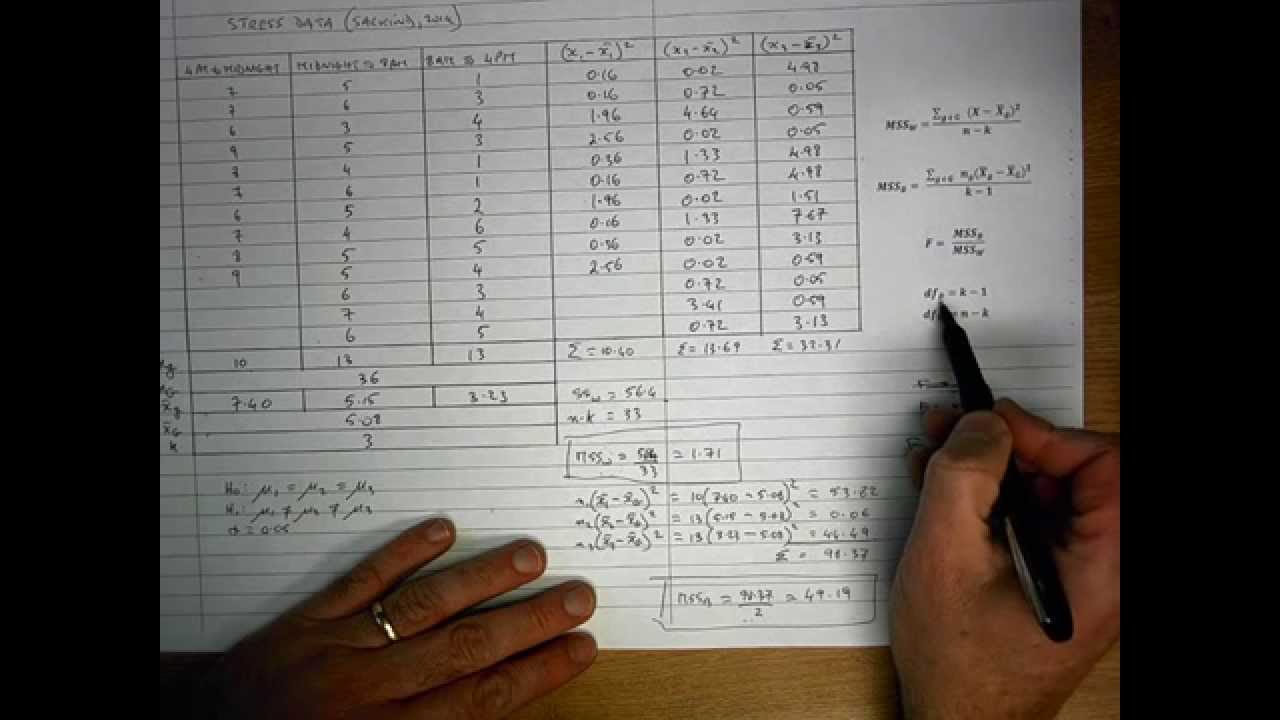 STRESS DATA (SALKIND, 2014)
4PM to MIDNIGHT MIDNIGHT to 8AM 8AM to 4PM (x₁-x̄₁)² (x₂-x̄₂)² (x₃-x̄₃)²
7 5 1 0.16 0.02 4.98
7 6 3 0.16 0.72 0.05
6 3 4 1.96 4.64 0.59
9 5 3 2.56 0.02 0.05
4 1 0.36 1.33 4.98
7 6 1 0.16 0.72 4.98
6 5 2 1.96 0.02 1.51
7 4 6 0.16 1.33 7.67
8 5 5 0.36 0.02 3.13
9 5 4 2.56 0.02 0.59
6 3 0.72 0.05
7 4 3.41 0.59
6 5 0.72 3.13
10 13 13 Σ = 10.40 Σ = 13.69 Σ = 32.31
36
x̄g 7.40 5.15 3.23 SSw = 56.4
x̄G 5.08 n-k = 33
k 3
MSSw = 56.4/33 = 1.71
H₀: μ₁ = μ₂ = μ₃
H₁: μ₁ ≠ μ₂ ≠ μ₃
α = 0.05
n₁(x̄₁-x̄G)² = 10(7.40-5.08)² = 53.82
n₂(x̄₂-x̄G)² = 13(5.15-5.08)² = 0.06
n₃(x̄₃-x̄G)² = 13(3.23-5.08)² = 44.49
Σ = 98.37
MSSB = 98.37/2 = 49.19
MSS_W = Σ_{g∈G} (X - X̄_G)² / n - k
MSS_B = Σ_{g∈G} n_g(X̄_g - X̄_G)² / k - 1
F = MSS_B / MSS_W
df_B = k - 1
df = n - k